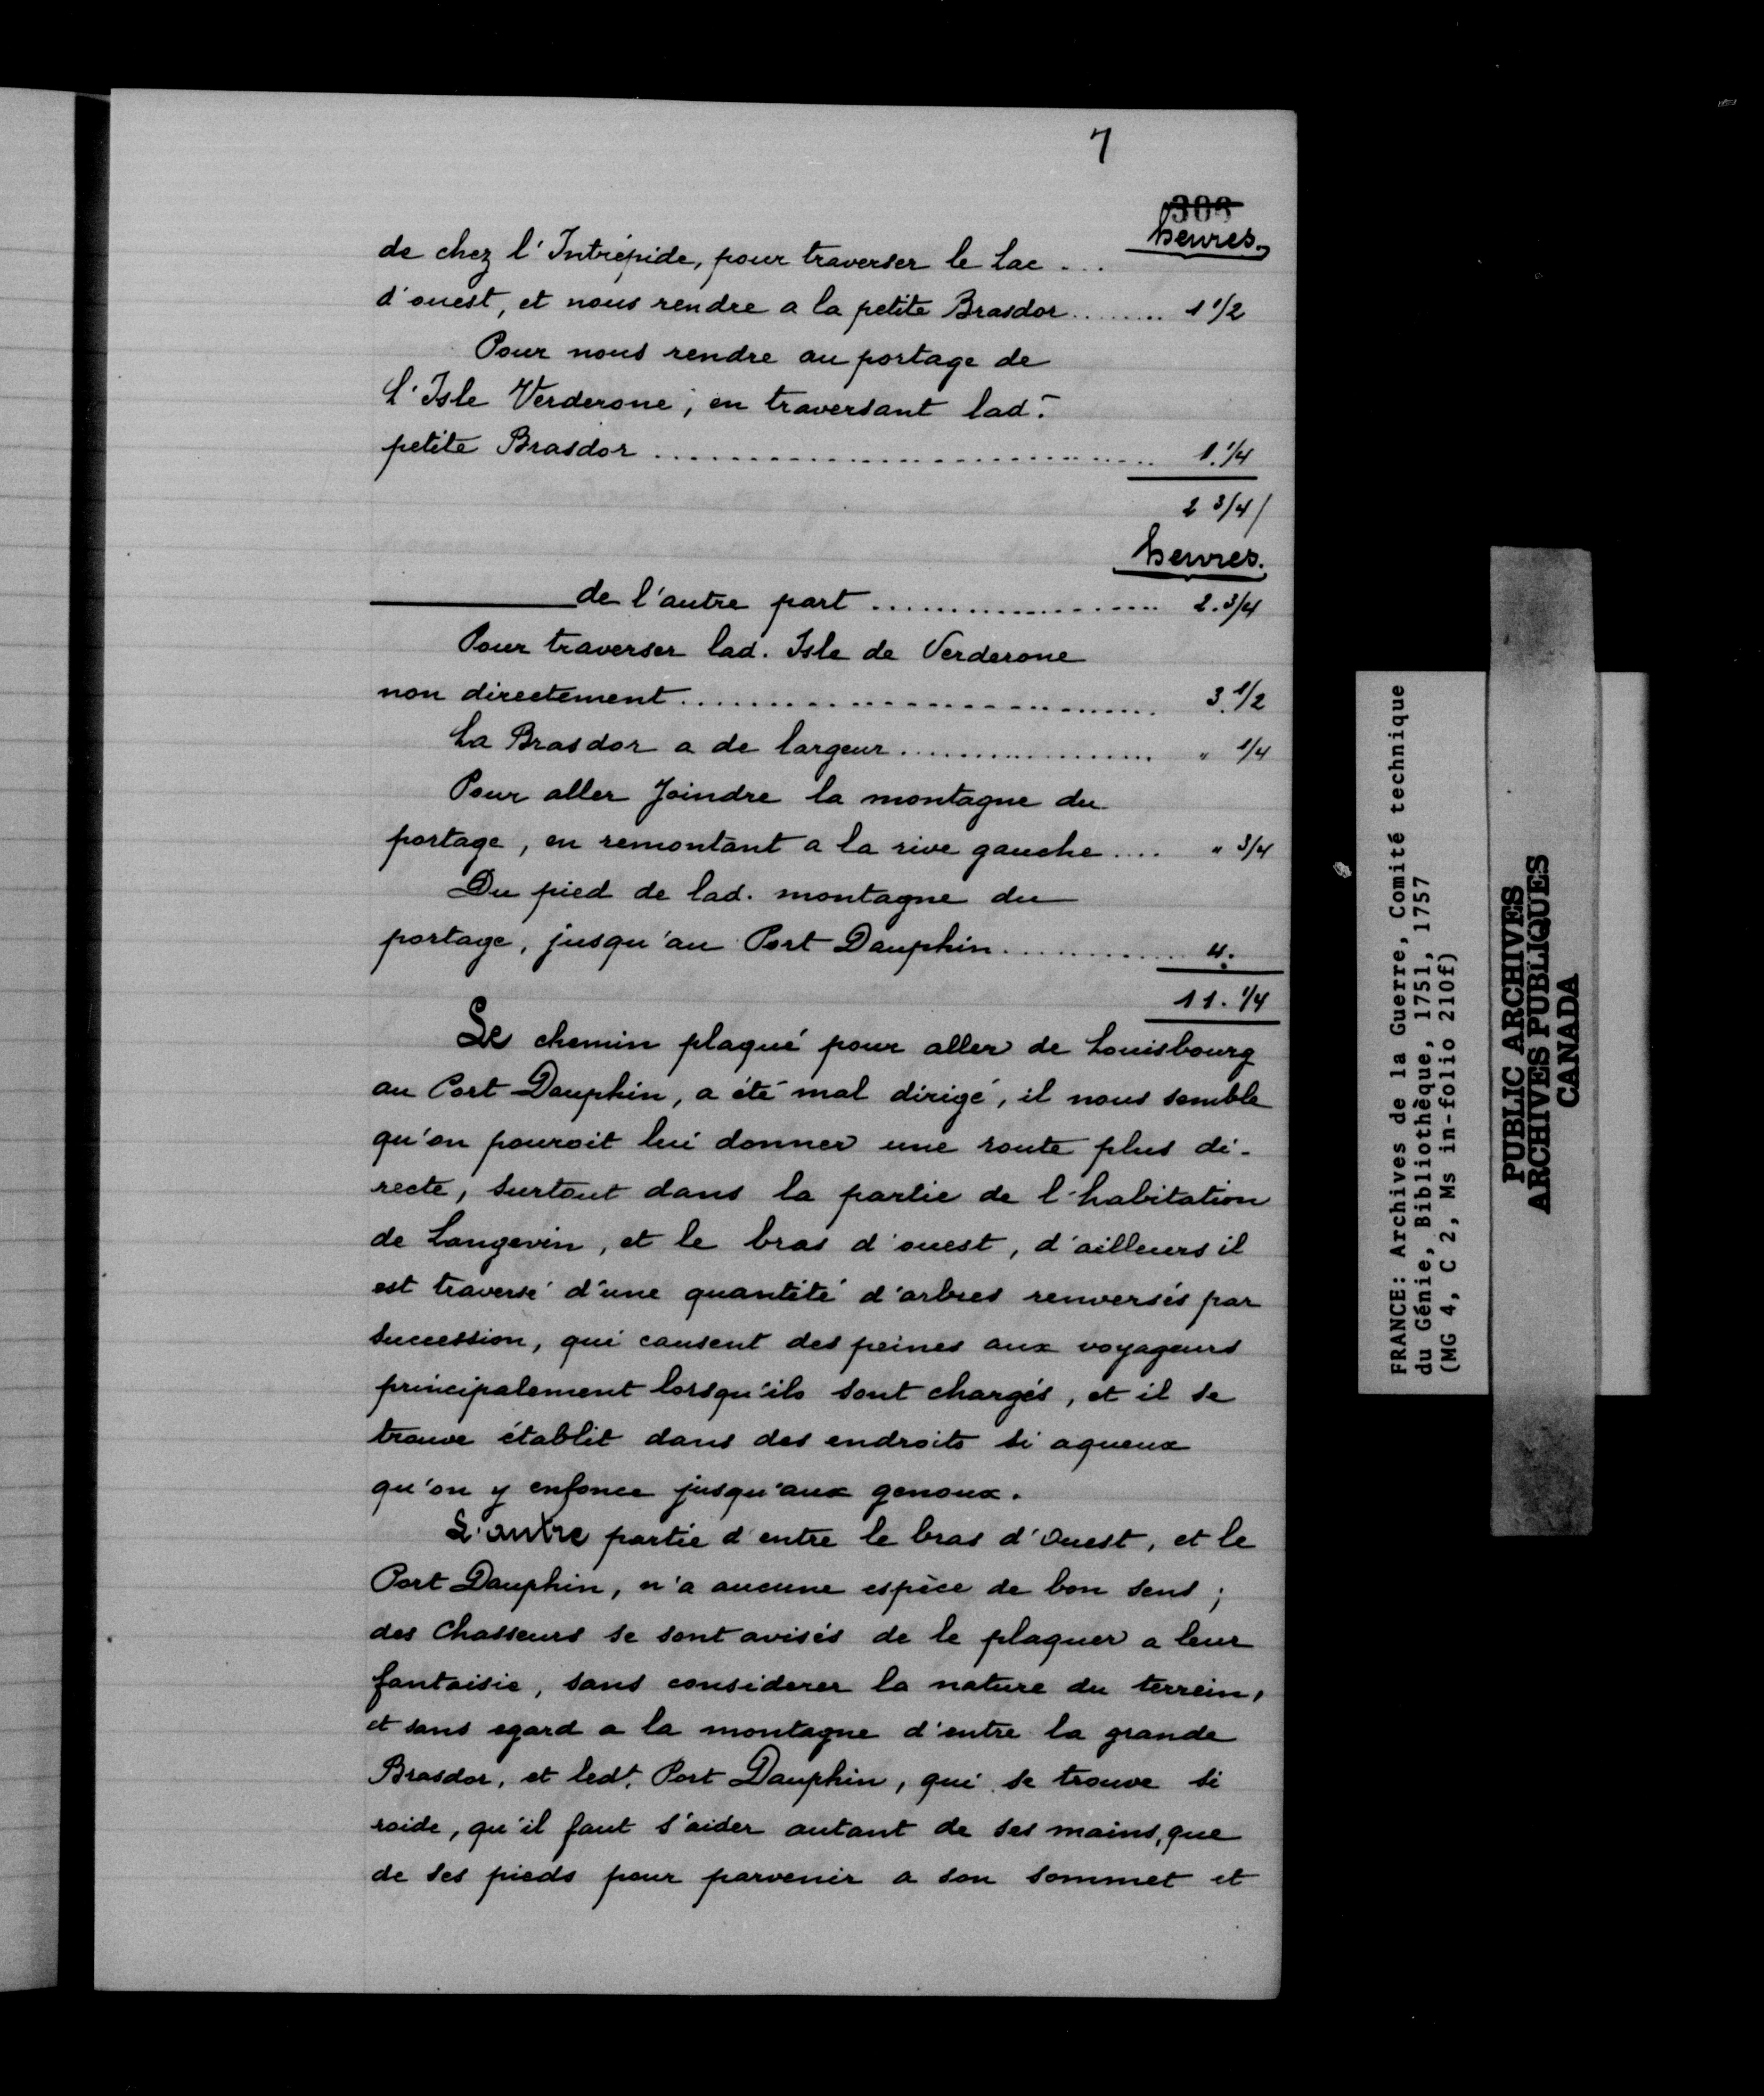 7
306
heures.
de chez l'Intrépide, pour traverser le Lac ...
d'ouest, et nous rendre a la petite Brasdor........ 1 1/2
Pour nous rendre au portage de
l'Isle Verderone, en traversant lad.
petite Brasdor ........................... 1. 1/4
2 3/4/
heures.
de l'autre part .................. 2. 3/4
Pour traverser lad. Isle de Verderone
non directement ........................... 3. 1/2
La Brasdor a de largeur ................. " 1/4
Pour aller Joindre la montagne du
portage, en remontant a la rive gauche .... " 3/4
Du pied de lad. montagne du
portage, jusqu'au Port Dauphin ............ 4.
11. 1/4
Le chemin plaqué pour aller de Louisbourg
au Port Dauphin, a été mal dirigé, il nous semble
qu'on pouroit lui donner une route plus di-
recte, surtout dans la partie de l'habitation
de Langevin, et le bras d'ouest, d'ailleurs il
est traversé d'une quantité d'arbres renversés par
succession, qui causent des peines aux voyageurs
principalement lorsqu'ils sont chargés, et il se
trouve établit dans des endroits si aqueux
qu'on y enfonce jusqu'aux genoux.
L'autre partie d'entre le bras d'Ouest, et le
Port Dauphin, n'a aucune espèce de bon sens ;
des Chasseurs se sont avisés de le plaquer a leur
fantaisie, sans considerer la nature du terrein,
et sans egard a la montagne d'entre la grande
Brasdor, et ledt. Port Dauphin, qui se trouve si
roide, qu'il faut s'aider autant de ses mains, que
de ses pieds pour parvenir a son sommet et
FRANCE: Archives de la Guerre, Comité technique
du Génie, Bibliothèque, 1751, 1757
(MG 4, C 2, Ms in-folio 210f)
PUBLIC ARCHIVES
ARCHIVES PUBLIQUES
CANADA